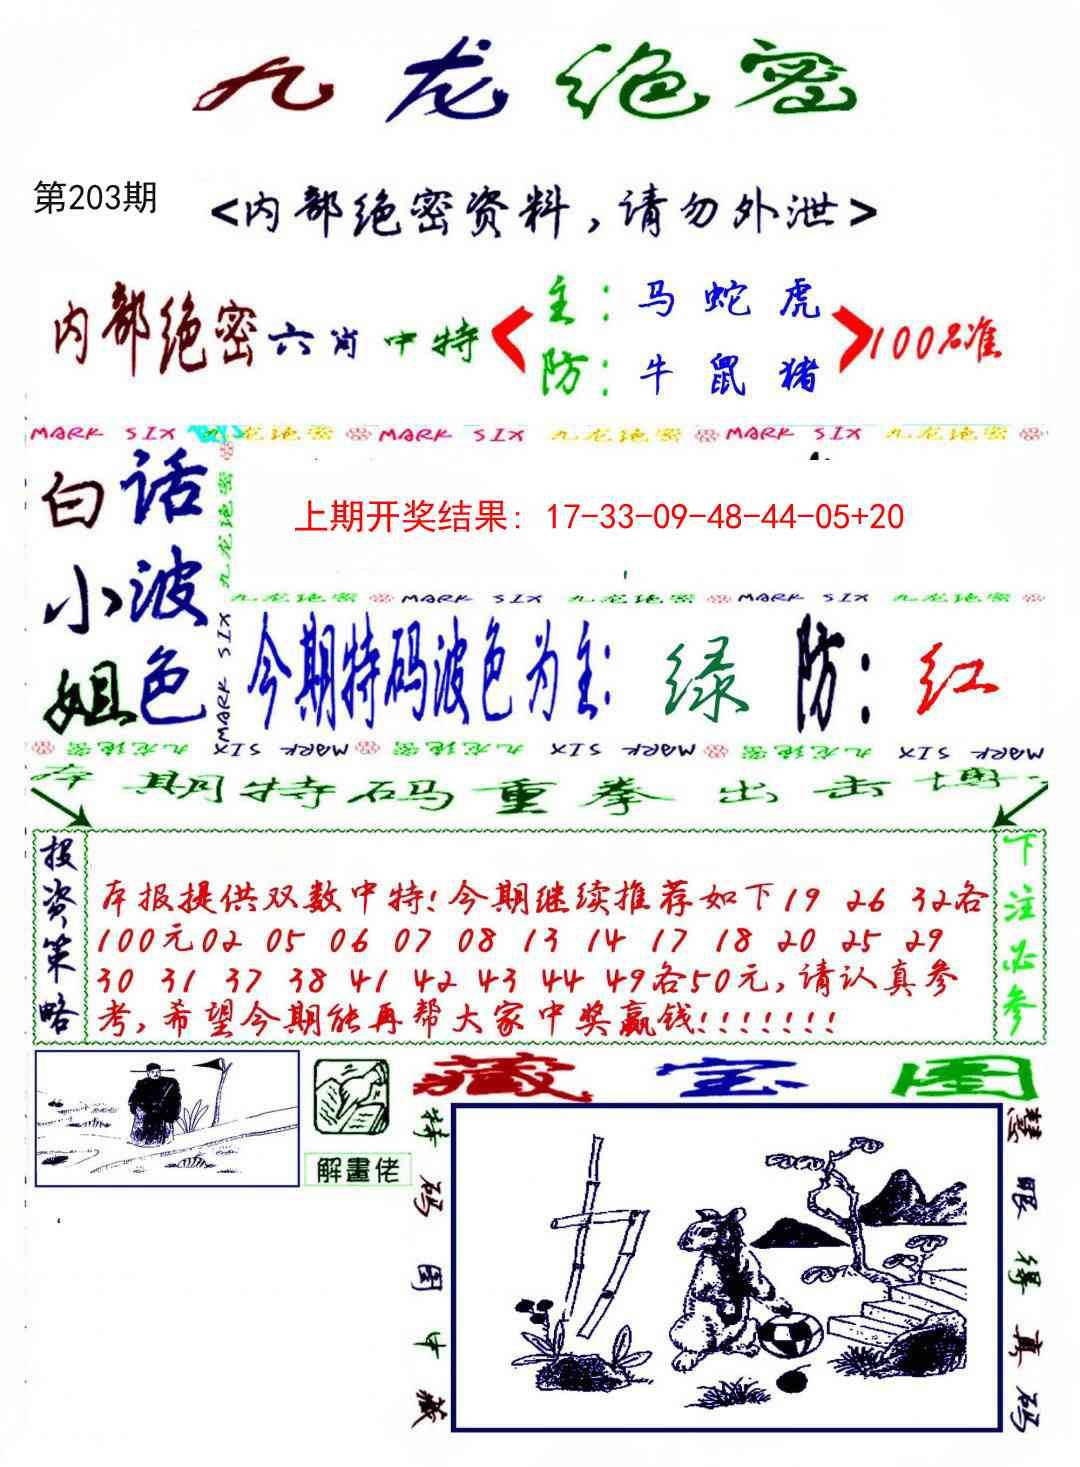 九龙绝密
第203期
<内部绝密资料,请勿外泄>
内部绝密六肖中特
主:马 蛇 虎
防:牛 鼠 猪
100%准
MARK SIX 九龙绝密 MARK SIX 九龙绝密 MARK SIX 九龙绝密
白小姐
话波色
九龙绝密
MARK SIX
上期开奖结果: 17-33-09-48-44-05+20
九龙绝密 MARK SIX 九龙绝密 MARK SIX 九龙绝密
今期特码波色为主: 绿 防: 红
MARK SIX 九龙绝密 MARK SIX 九龙绝密 MARK SIX 九龙绝密
本期特码重拳出击博
投资策略
本报提供双数中特!今期继续推荐如下19 26 32各
100元02 05 06 07 08 13 14 17 18 20 25 29
30 31 37 38 41 42 43 44 49各50元,请认真参
考,希望今期能再帮大家中奖赢钱!!!!!!!
下注必参
解畫佬
藏宝图
特码图中藏
慧眼得真码